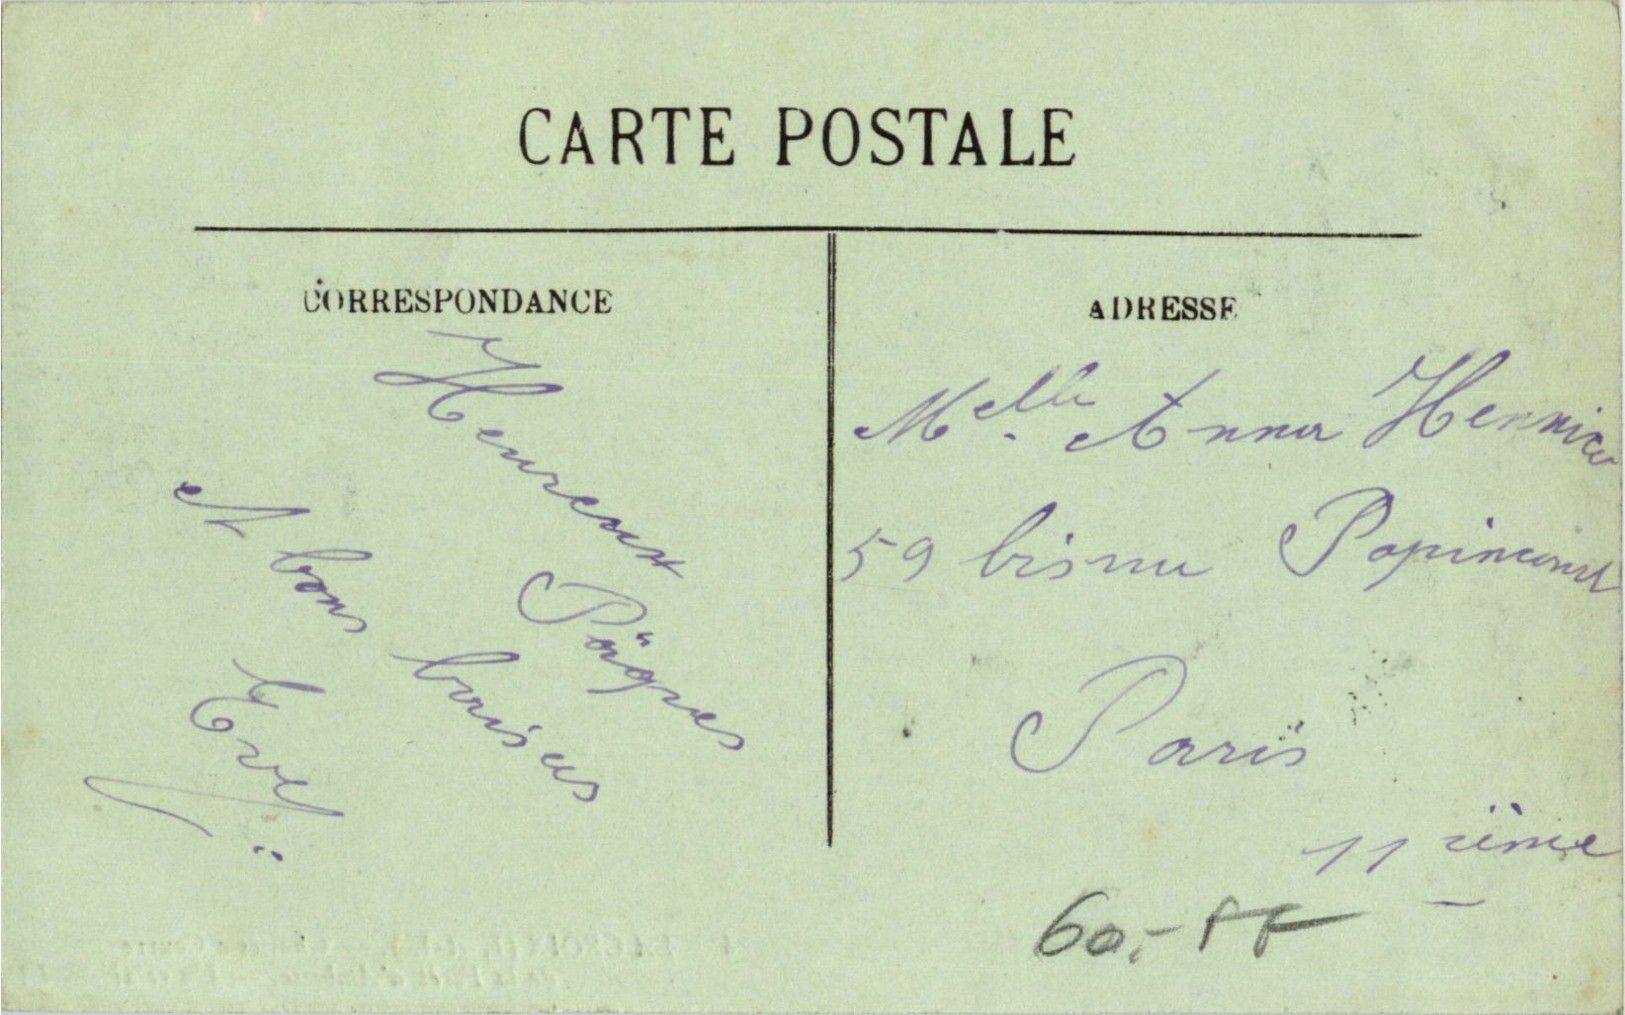 CARTE POSTALE
CORRESPONDANCE
Heureux
Pâques
et bons baisers
Eve
ADRESSE
Melle. Anna
59 bis rue Popincourt
Paris
11 ième
60,-